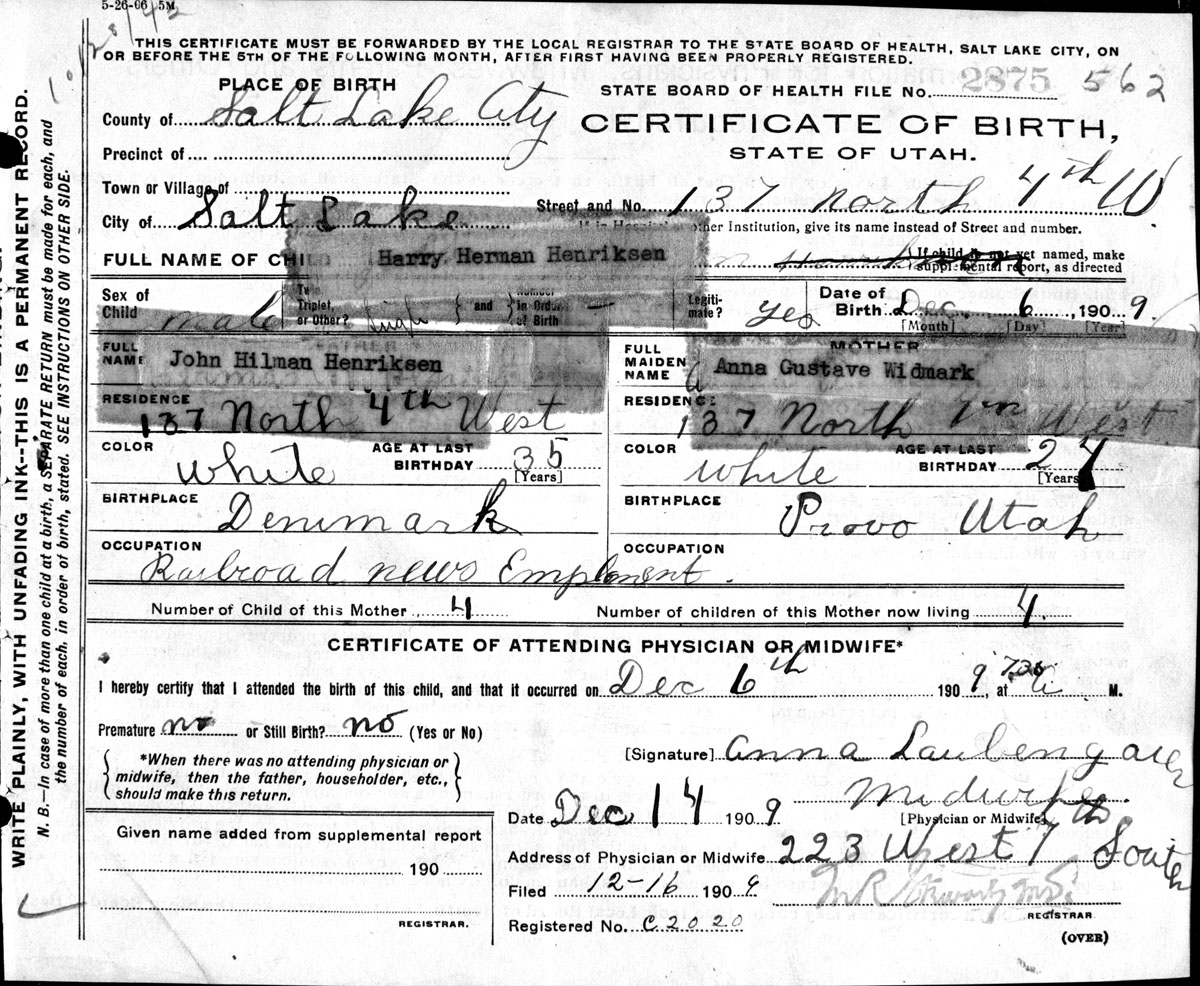 5-26-06 5M
THIS CERTIFICATE MUST BE FORWARDED BY THE LOCAL REGISTRAR TO THE STATE BOARD OF HEALTH, SALT LAKE CITY, ON
OR BEFORE THE 5TH OF THE FOLLOWING MONTH, AFTER FIRST HAVING BEEN PROPERLY REGISTERED.
PLACE OF BIRTH
STATE BOARD OF HEALTH FILE No. 2875 562
County of Salt Lake City
CERTIFICATE OF BIRTH,
Precinct of
STATE OF UTAH.
Town or Village of
Street and No. 137 North 4th W
City of Salt Lake
other Institution, give its name instead of Street and number.
FULL NAME OF CHILD Harry Herman Henriksen
If child is not yet named, make
supplemental report, as directed
Sex of Child male
Twin, Triplet, or Other? single and Number in Order of Birth —
Legitimate? yes
Date of Birth Dec 6, 1909.
[Month] [Day] [Year]
FULL NAME John Hilman Henriksen
MOTHER
FULL MAIDEN NAME Anna Gustave Widmark
RESIDENCE 137 North 4th West
RESIDENCE 137 North West
COLOR white
AGE AT LAST BIRTHDAY 35 [Years]
COLOR white
AGE AT LAST BIRTHDAY 27 [Years]
BIRTHPLACE Denmark
BIRTHPLACE Provo Utah
OCCUPATION Railroad news
OCCUPATION
Number of Child of this Mother 4
Number of children of this Mother now living 4.
CERTIFICATE OF ATTENDING PHYSICIAN OR MIDWIFE*
I hereby certify that I attended the birth of this child, and that it occurred on Dec 6th 1909, at 730 a M.
Premature no or Still Birth? no (Yes or No)
*When there was no attending physician or
midwife, then the father, householder, etc.,
should make this return.
[Signature] Anna Laubengaier
Midwife
[Physician or Midwife]
Date Dec 14 1909
Given name added from supplemental report
190
Address of Physician or Midwife 223 West 7th South
Filed 12-16 1909
REGISTRAR.
REGISTRAR
Registered No. C2020
(OVER)
WRITE PLAINLY, WITH UNFADING INK--THIS IS A PERMANENT RECORD.
N. B.—In case of more than one child at a birth, a SEPARATE RETURN must be made for each, and
the number of each, in order of birth, stated. SEE INSTRUCTIONS ON OTHER SIDE.